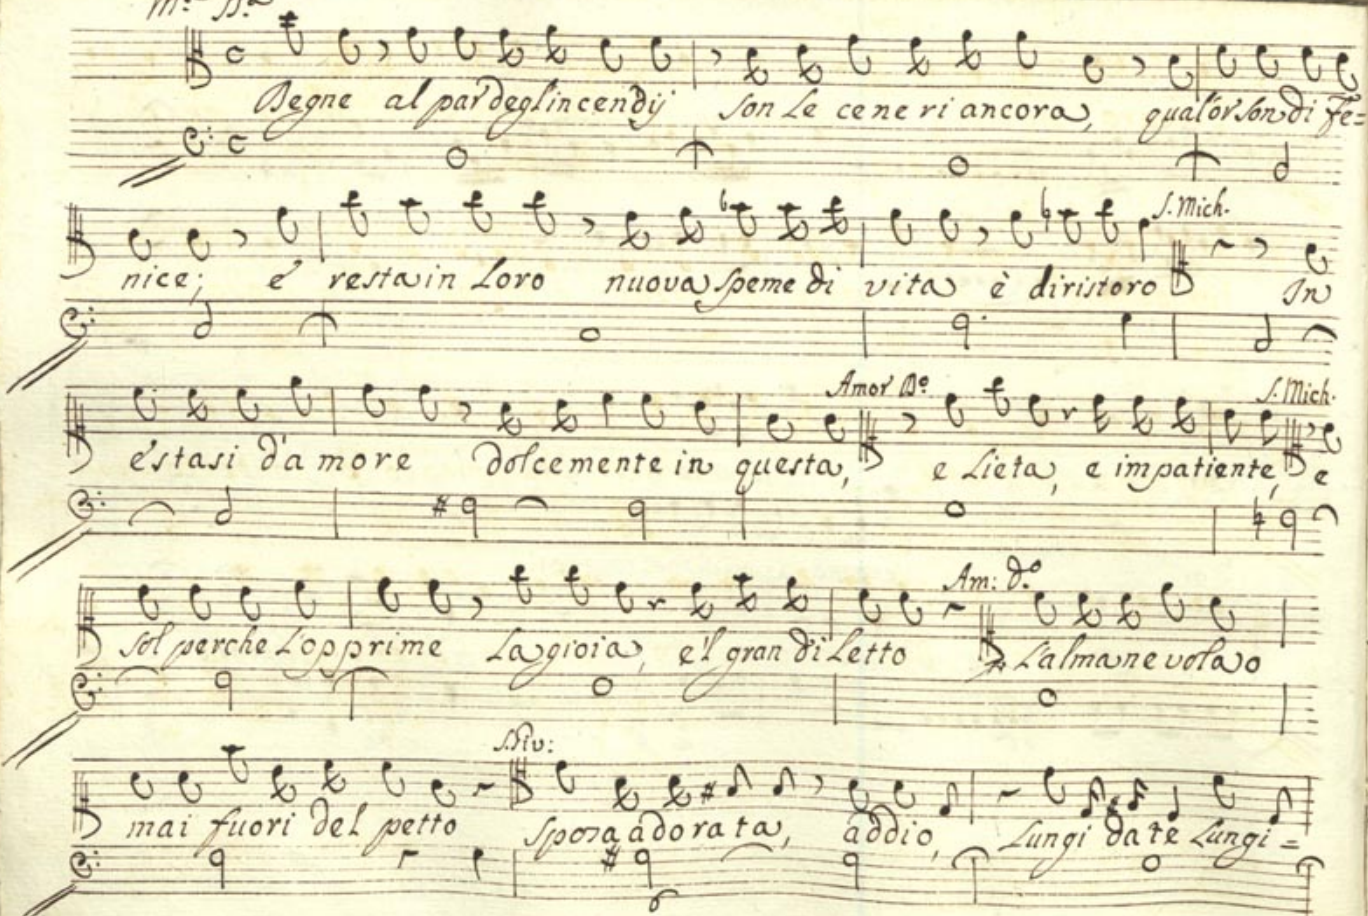 Degne al par degl'incendij son le ceneri ancora, qualor son di Fe=
S. Mich.
nice; e resta in loro nuova speme di vita è di ristoro In
Amor D.º S. Mich.
éstasi d'amore dolcemente in questa, e lieta, e impatiente, e
Am: D.º
sol perche l'opprime la gioia, e'l gran diletto L'alma ne vola o
mai fuori del petto sposa adorata, addio, Lungi da te Lungi=